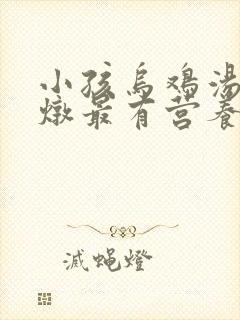 小孩乌鸡汤
燉最有营养
灭蝇燈